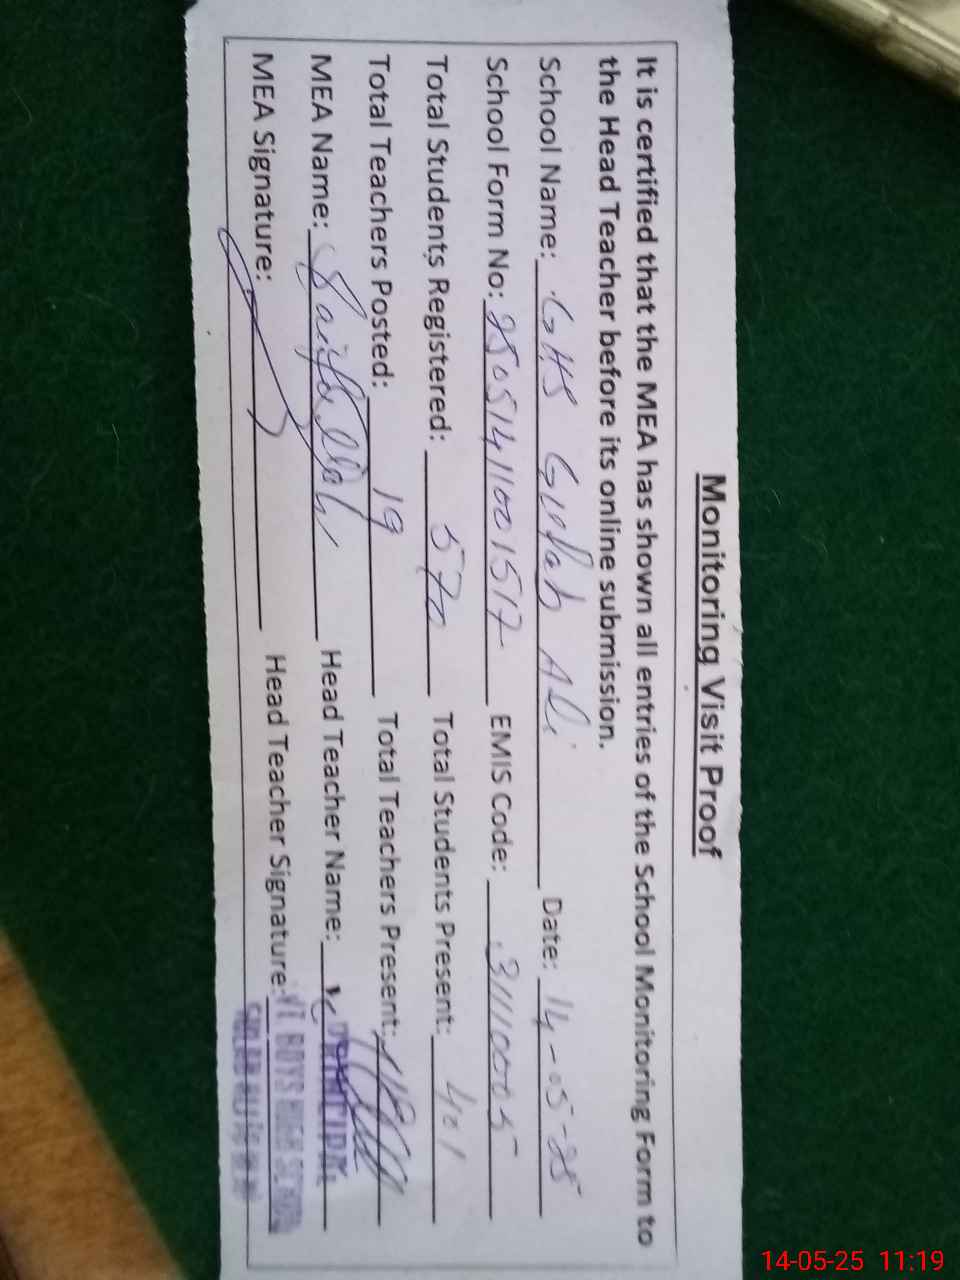 Monitoring Visit Proof
It is certified that the MEA has shown all entries of the School Monitoring Form to
the Head Teacher before its online submission.
School Name: GHS Gulab Ali Date: 14-05-25
School Form No: 25051411001517 EMIS Code: 31110005
Total Students Registered: 570 Total Students Present: 401
Total Teachers Posted: 19 Total Teachers Present:
MEA Name: Head Teacher Name:
PRINCIPAL
MEA Signature: Head Teacher Signature:
VT BOYS HIGH SCHOOL
GULAB ALI
14-05-25 11:19